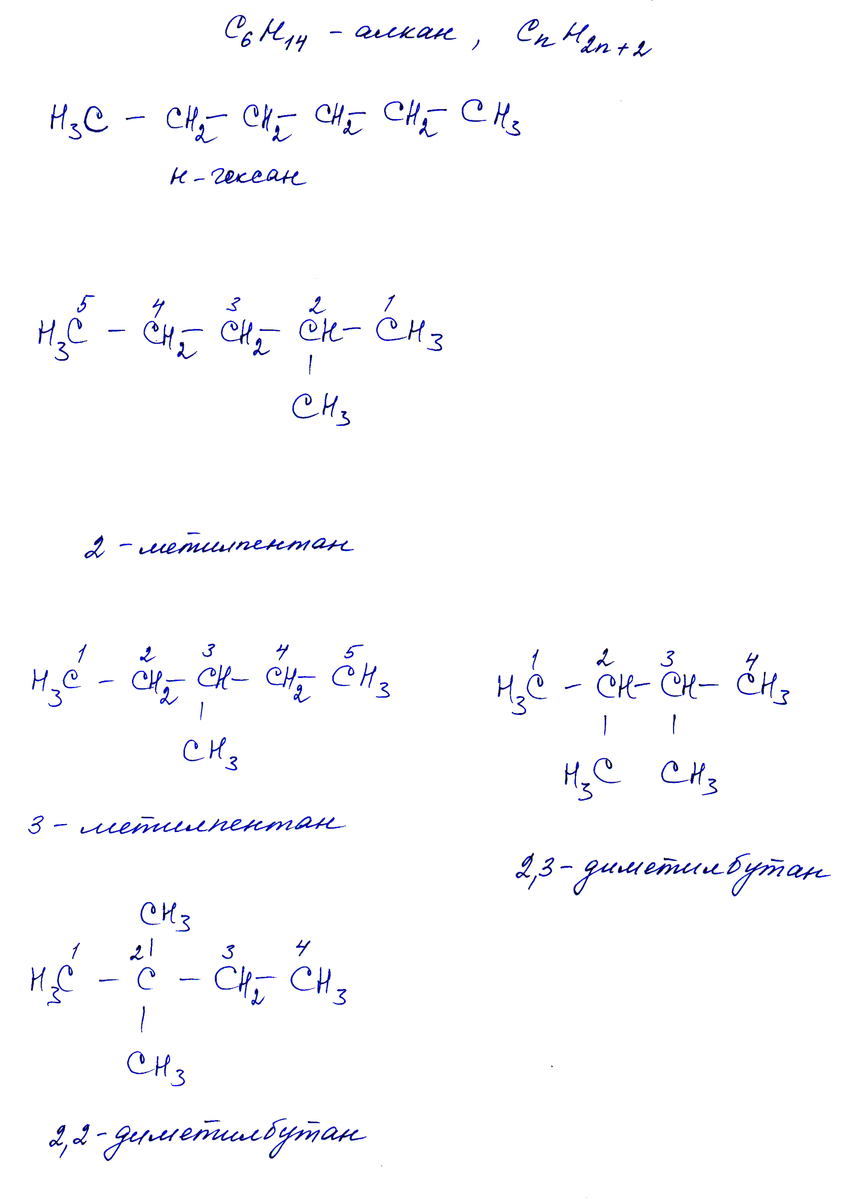 C₆H₁₄ – алкан, CₙH₂ₙ₊₂
H₃C – CH₂ – CH₂ – CH₂ – CH₂ – CH₃
н – гексан
5 4 3 2 1
H₃C – CH₂ – CH₂ – CH – CH₃
|
CH₃
2 – метилпентан
1 2 3 4 5
H₃C – CH₂ – CH – CH₂ – CH₃
|
CH₃
3 – метилпентан
1 2 3 4
H₃C – CH – CH – CH₃
| |
H₃C CH₃
2,3 – диметилбутан
CH₃
1 2| 3 4
H₃C – C – CH₂ – CH₃
|
CH₃
2,2 – диметилбутан